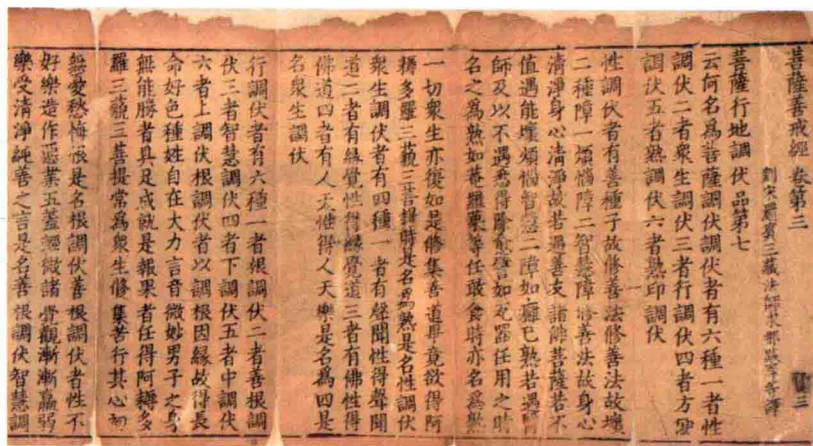 菩薩善戒經卷第三
劉宋罽賓三藏法師求那跋摩等譯
菩薩行地調伏品第七
云何名為菩薩調伏調伏者有六種一者性
調伏二者衆生調伏三者行調伏四者方便
調伏五者熟調伏六者熟印調伏
性調伏者有善種子故修善法修善法故壞
二種障一煩惱障二智慧障修善法故身心
清淨身心清淨故若遇善友諸佛菩薩若不
值遇能壞煩惱智慧二障如癰已熟若遇醫
師及以不遇悉得除愈譬如瓦器任用之時
名之為熟如菴羅菓等任敢食時亦名為熟
一切衆生亦復如是修集善道畢竟欲得阿
耨多羅三藐三菩提時是名為熟是名性調伏
衆生調伏者有四種一者有聲聞性得聲聞
道二者有緣覺性得緣覺道三者有佛性得
佛道四者有人天性得人天樂是名為四是
名衆生調伏
行調伏者有六種一者根調伏二者善根調
伏三者智慧調伏四者下調伏五者中調伏
六者上調伏根調伏者以調根因緣故得長
命好色種姓自在大力言音微妙男子之身
無能勝者具足成就是報果者任得阿耨多
羅三藐三菩提常為衆生修集苦行其心初
無憂愁悔恨是名根調伏善根調伏者性不
好樂造作惡業五蓋輕微諸覺觀漸漸羸弱
樂受清淨純善之言是名善根調伏智慧調